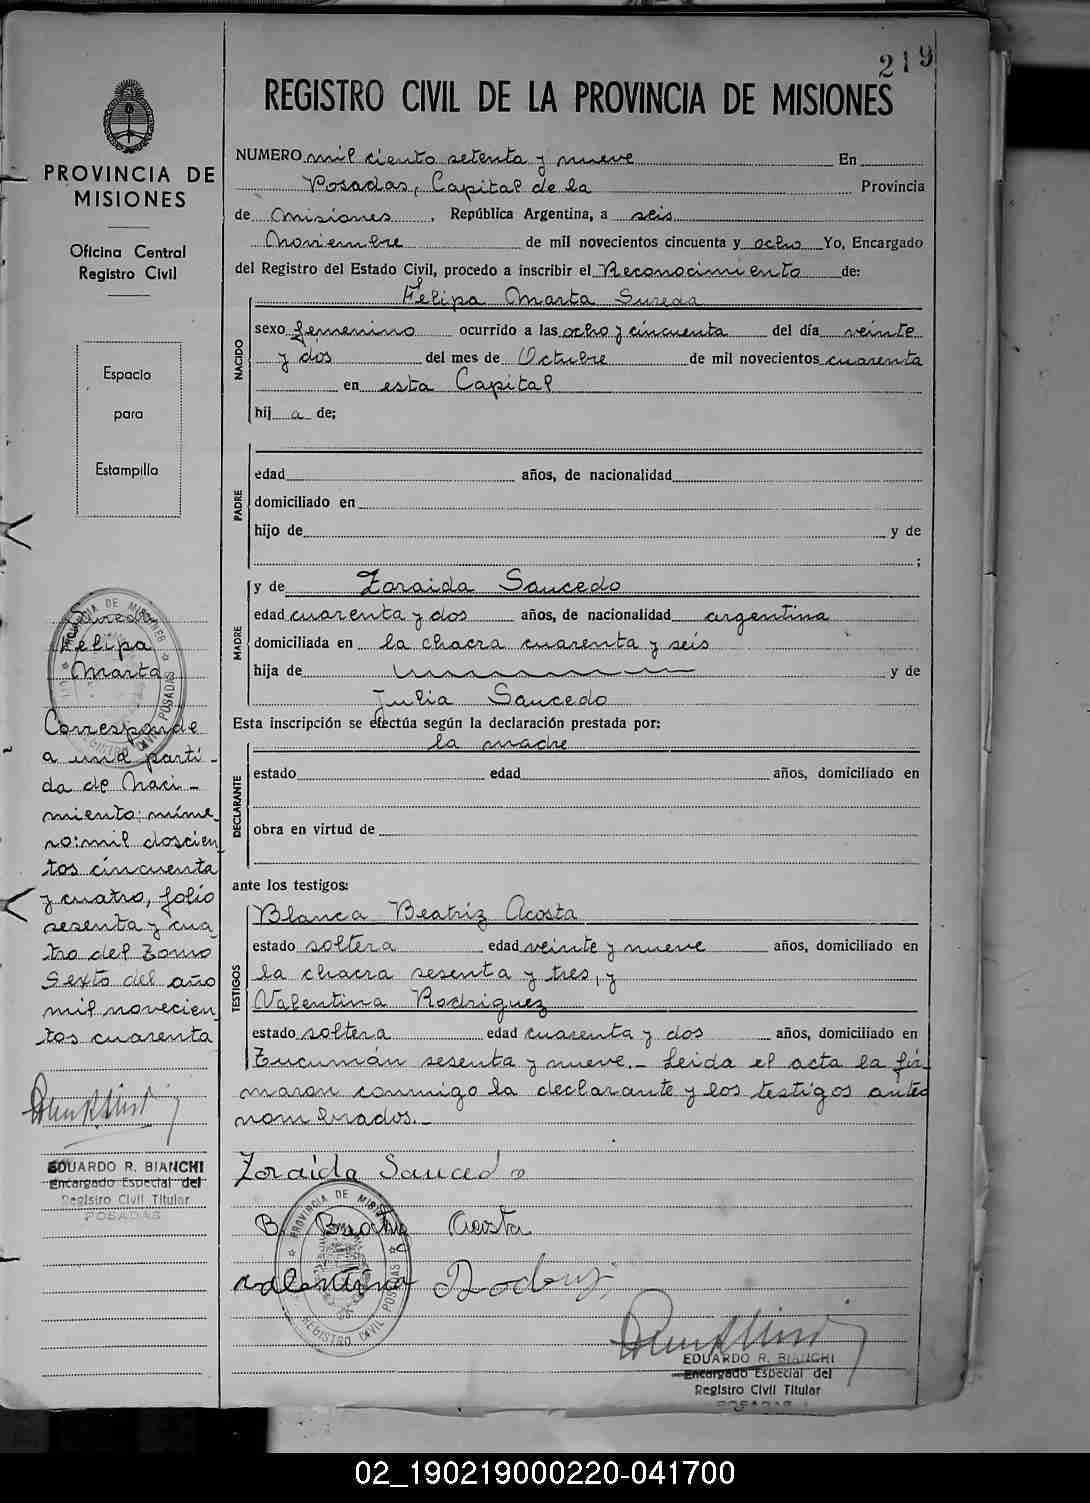 219
REGISTRO CIVIL DE LA PROVINCIA DE MISIONES
PROVINCIA DE
MISIONES
Oficina Central
Registro Civil
Espacio
para
Estampilla
NUMERO mil ciento setenta y nueve En
Posadas, Capital de la Provincia
de Misiones, República Argentina, a seis
Noviembre de mil novecientos cincuenta y ocho Yo, Encargado
del Registro del Estado Civil, procedo a inscribir el Reconocimiento de:
Felipa Marta Sureda
NACIDO
sexo femenino ocurrido a las ocho y cincuenta del día veinte
y dos del mes de Octubre de mil novecientos cuarenta
en esta Capital
hij a de;
PADRE
edad años, de nacionalidad
domiciliado en
hijo de y de
;
MADRE
y de Zoraida Saucedo
edad cuarenta y dos años, de nacionalidad argentina
domiciliada en la chacra cuarenta y seis
hija de y de
Julia Saucedo
Esta inscripción se efectúa según la declaración prestada por:
la madre
DECLARANTE
estado edad años, domiciliado en
obra en virtud de
ante los testigos:
TESTIGOS
Blanca Beatriz Acosta
estado soltera edad veinte y nueve años, domiciliado en
la chacra sesenta y tres, y
Valentina Rodriguez
estado soltera edad cuarenta y dos años, domiciliado en
Tucumán sesenta y nueve.- Leida el acta la fir-
maron conmigo la declarante y los testigos antes
nombrados.-
Zoraida Saucedo
B. Beatriz Acosta
Valentina
EDUARDO R. BIANCHI
Encargado Especial del
Registro Civil Titular
POSADAS
PROVINCIA DE MISIONES
REGISTRO CIVIL POSADAS
Sureda
Felipa
Marta
Corresponde
a una parti-
da de Naci-
miento: núme-
ro: mil doscien
tos cincuenta
y cuatro, folio
sesenta y cua
tro del Tomo
Sexto del año
mil novecien
tos cuarenta
EDUARDO R. BIANCHI
Encargado Especial del
Registro Civil Titular
POSADAS
PROVINCIA DE MISIONES
REGISTRO CIVIL POSADAS
02_190219000220-041700